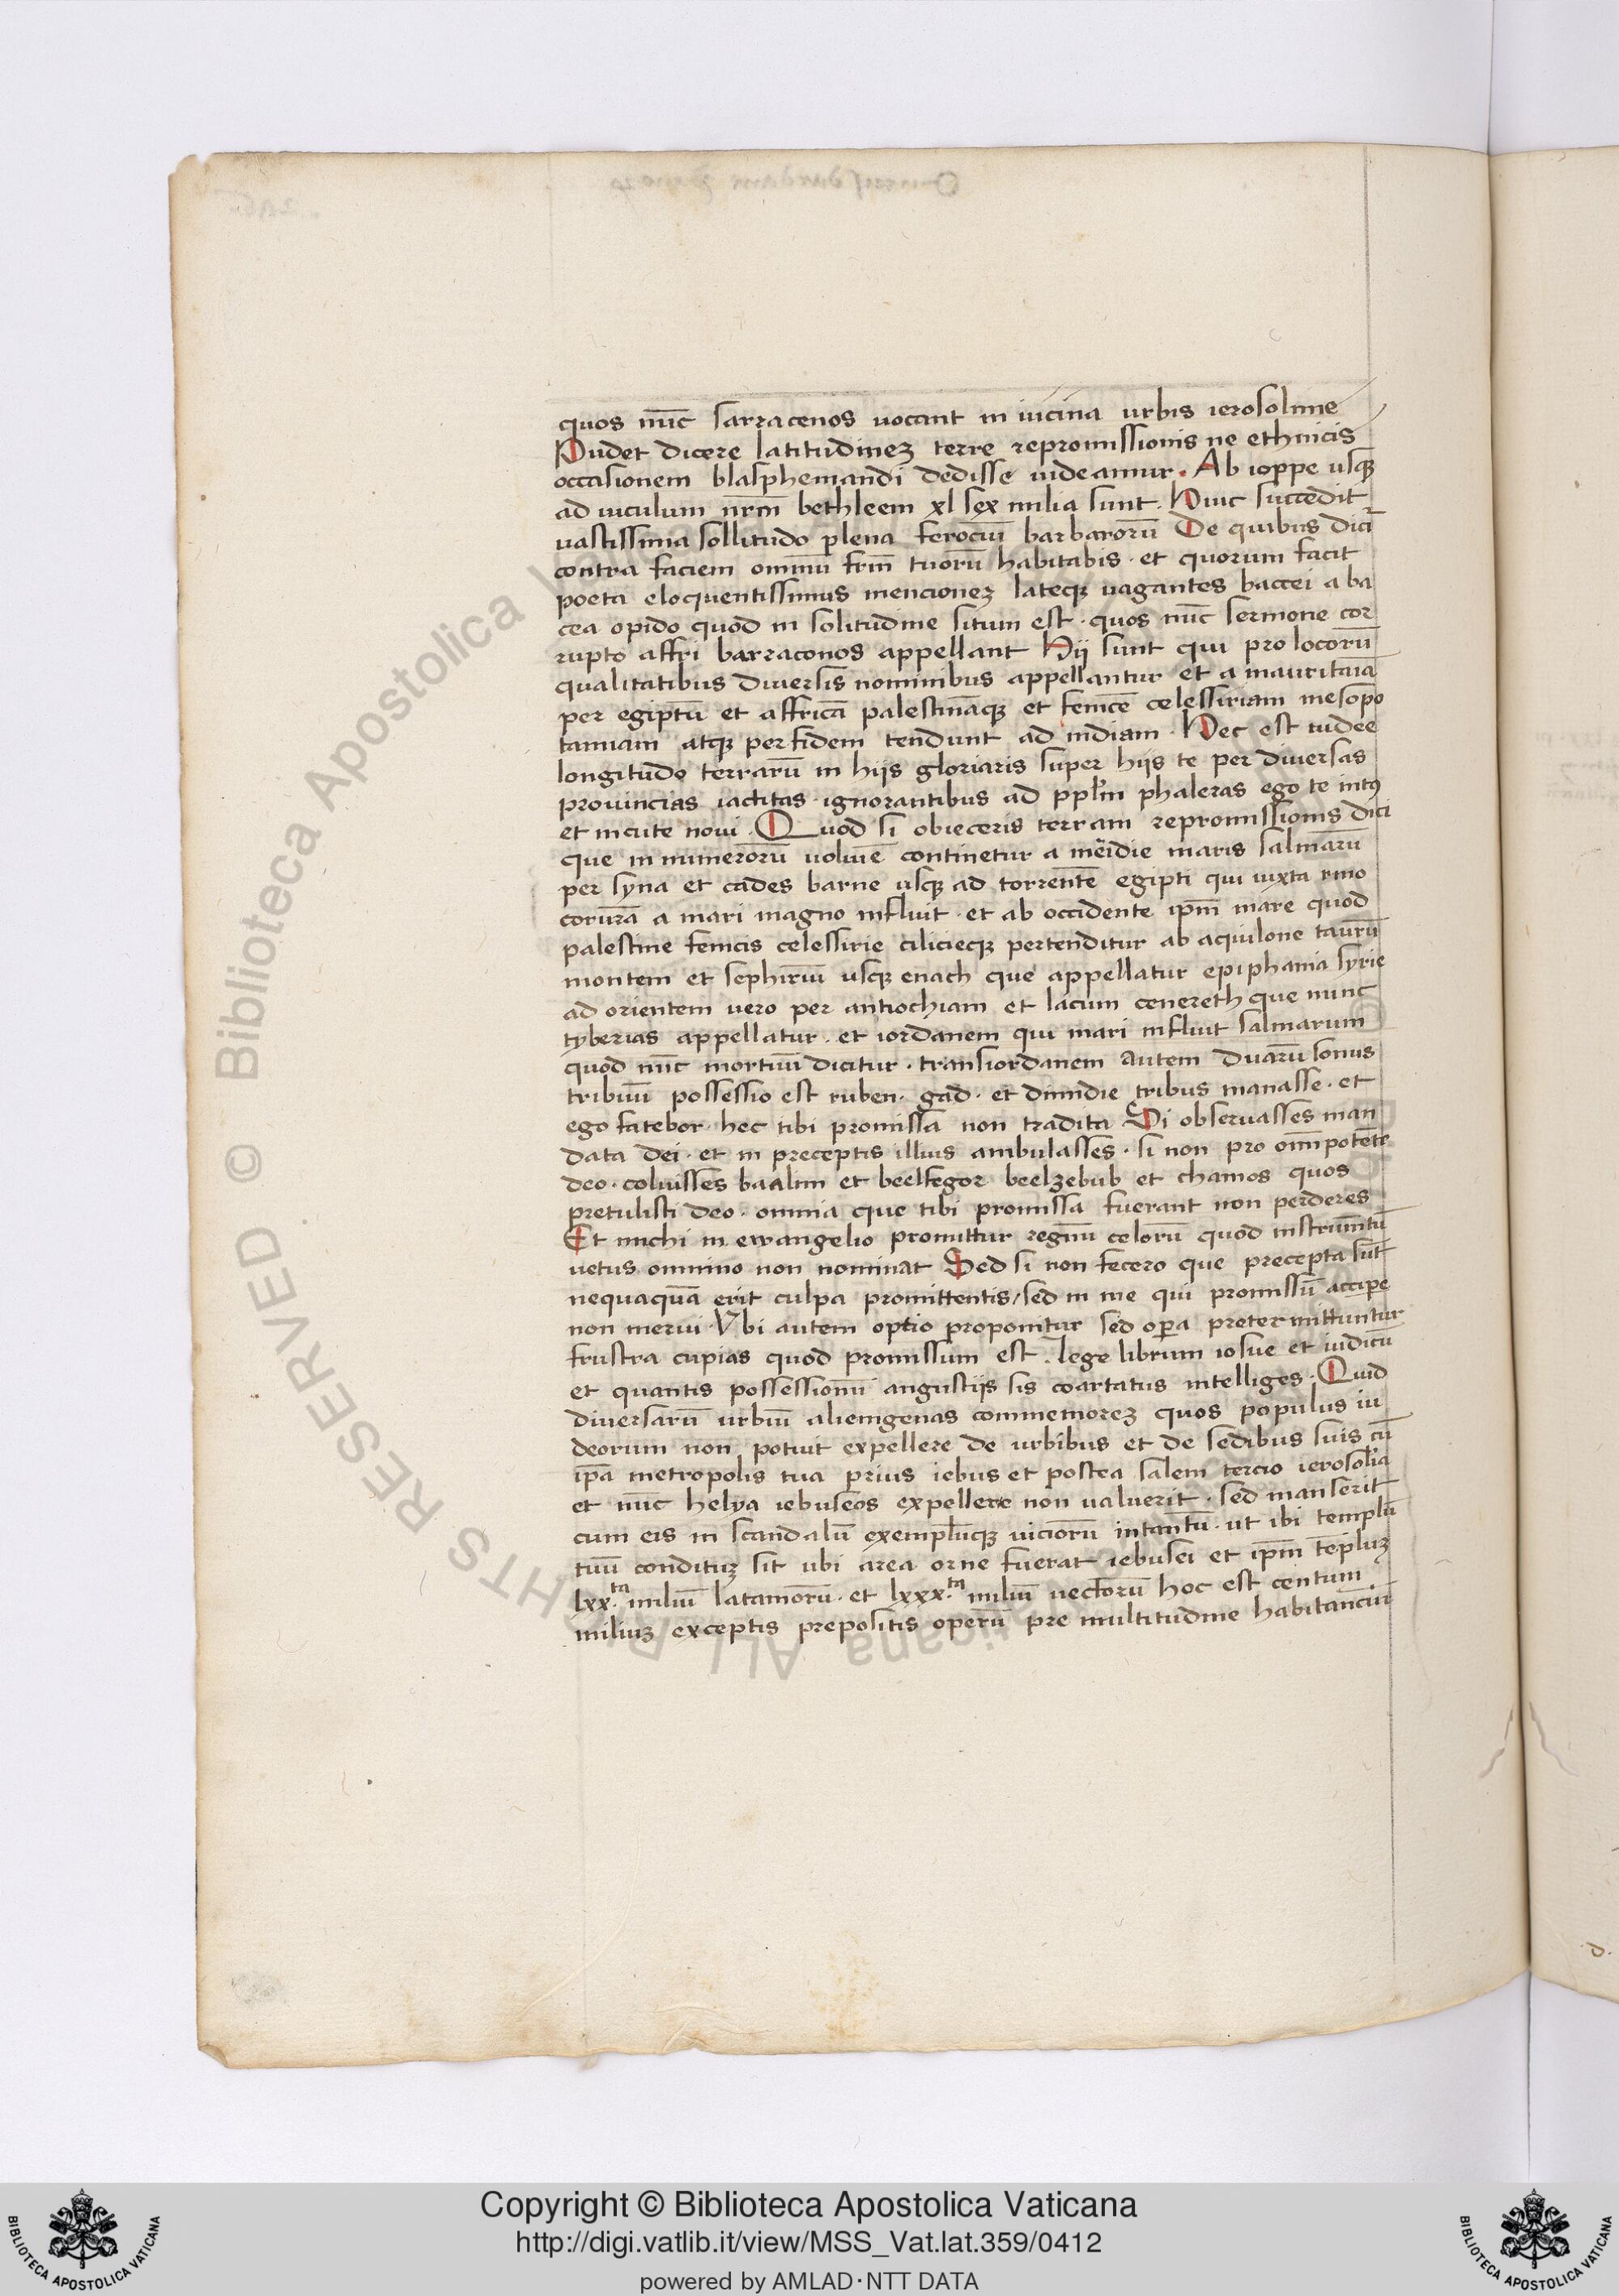 quos nūc sarracenos uocant in iucina urbis ierosolime
Pudet dicere latitudinez terre repromissionis ne ethnicis
occasionem blasphemandi dedisse uideamur. Ab ioppe usqz
ad uiculum nr̄m bethleem xl sex milia sunt. Huic succedit
uastissima sollitudo plena ferociū barbarorū De quibus dicī
contra faciem omniū frm̄ tuorū habitabis. et quorum facit
poeta eloquentissimus mencionez lateqz uagantes baccei a ba
cea opido quod in solitudine situm est. quos nūc sermone cor
rupto affri barraconos appellant Hij sunt qui pro locorū
qualitatibus diuersis nominibus appellantur et a mauritaīa
per egiptū et affricā palestināqz et fenicē celessiriam mesopo
tamiam atqz perfidem tendunt ad indiam. Hec est iudee
longitudo terrarū in hijs gloriaris super hijs te per diuersas
prouincias iactitas. ignorantibus ad ppl'm phaleras ego te intꝰ
et in cute noui. Quod si obieceris terram repromissionis dici
que in numerorū uolumē continetur a meīdie maris salinarū
per syna et cades barne usqz ad torrentē egipti qui iuxta rino
coruram a mari magno influit. et ab occidente ip̄m mare quod
palestine fenicis celessirie ciliciecqz pertenditur ab aquilone taurū
montem et sephiriū usqz enach que appellatur epiphania syrie
ad orientem uero per antiochiam et lacum cenereth que nunc
tyberias appellatur. et iordanem qui mari influit salinarum
quod nūc mortuū dicitur. transiordanem autem duarū sonus
tribuū possessio est ruben. gad. et dimidie tribus manasse. et
ego fatebor hec tibi promissa non tradita Si obseruasses man
data dei. et in preceptis illius ambulasses. si non pro omīpotēte
deo. coluisses baalim et beelfegor beelzebub et chamos quos
pretulisti deo. omnia que tibi promissa fuerant non perderes
Et michi in ewangelio promittur regnū celorū quod instrumētū
uetus omnino non nominat Sed si non fecero que precepta sūt
nequaquā erit culpa promittentis/ sed in me qui promissū accipe
non merui. Vbi autem optio proponitur sed opera pretermittuntur
frustra cupias quod promissum est. lege librum iosue et iudicū
et quantis possessionū angustijs sis coartatus intelliges. Quid
diuersarū urbiū aliengenas commemorez quos populus iu
deorum non potuit expellere de urbibus et de sedibus suis cū
ip̄a metropolis tua prius iebus et postea salem tercio ierosol'ia
et nūc helya iebuseos expellere non ualuerit. sed manserit
cum eis in scandalū exempl'uqz uiciorū intantū. ut ibi templū
tuū condituz sit ubi area orne fuerat iebusei et ip̄m tēpluz
lxx.ta miliū latamorū. et lxxx.ta miliū uectorū hoc est centum
miliuz exceptis prepositis operū pre multitudine habitanciū
Copyright © Biblioteca Apostolica Vaticana
http://digi.vatlib.it/view/MSS_Vat.lat.359/0412
powered by AMLAD·NTT DATA